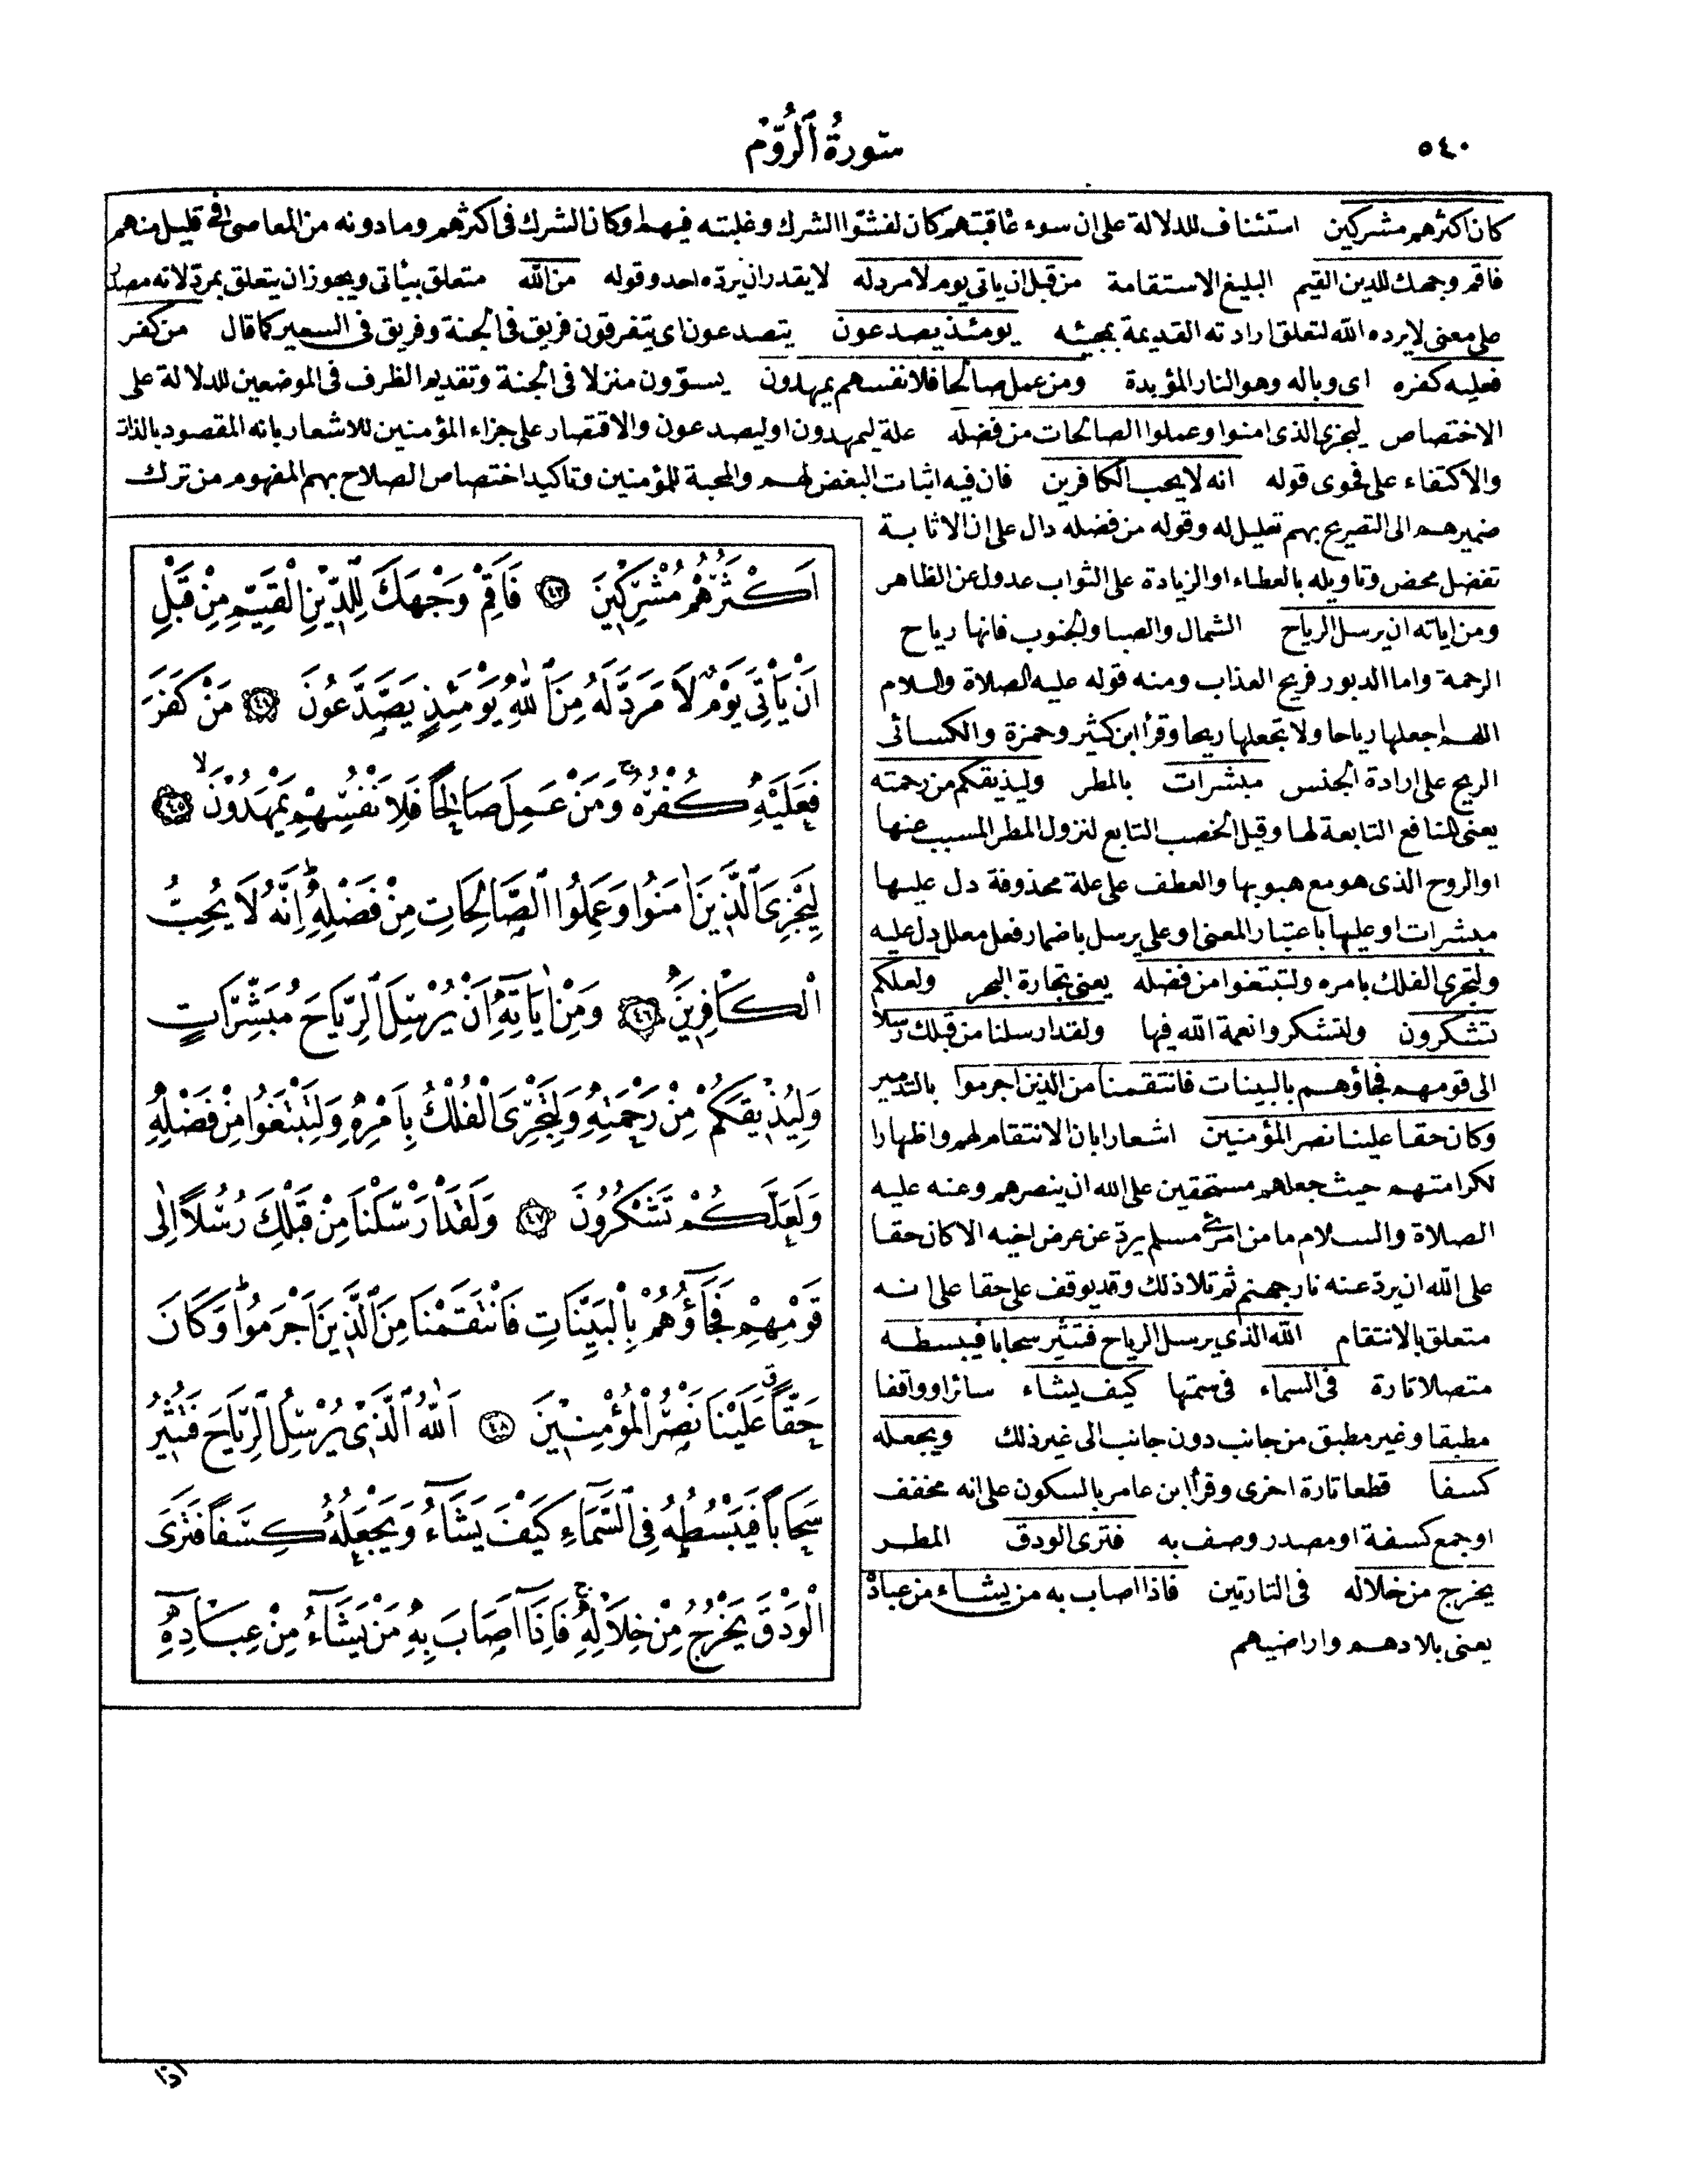 ٥٤٠
سورة الروم
كان اكثرهم مشركين استئناف للدلالة على ان سوء عاقبتهم كان لفشوا الشرك وغلبته فيهم او كان الشرك فى اكثرهم وما دونه من المعاصى فى قليل منهم
فاقم وجهك للدين القيم البليغ الاستقامة من قبل ان ياتى يوم لا مرد له لا يقدر ان يرده احد وقوله من الله متعلق بيأتى ويجوز ان يتعلق بمرد لانه مصدر
على معنى لا يرده الله لتعلق ارادته القديمة بمجيئه يومئذ يصدعون يتصدعون اى يتفرقون فريق فى الجنة وفريق فى السعير كما قال من كفر
فعليه كفره اى وباله وهو النار المؤبدة ومن عمل صالحا فلانفسهم يمهدون يسوّون منزلا فى الجنة وتقديم الظرف فى الموضعين للدلالة على
الاختصاص ليجزى الذى امنوا وعملوا الصالحات من فضله علة ليمهدون او ليصدعون والاقتصار على جزاء المؤمنين للاشعار بانه المقصود بالذات
والاكتفاء على فحوى قوله انه لا يحب الكافرين فان فيه اثبات البغض لهم والمحبة للمؤمنين وتاكيد اختصاص الصلاح بهم المفهوم من ترك
ضميرهم الى التصريح بهم تعليل له وقوله من فضله دال على ان الاثابة
تفضل محض وتاويله بالعطاء او الزيادة على الثواب عدول عن الظاهر
ومن اياته ان يرسل الرياح الشمال والصبا والجنوب فانها رياح
الرحمة واما الدبور فريح العذاب ومنه قوله عليه الصلاة والسلام
اللهم اجعلها رياحا ولا تجعلها ريحا وقرأ ابن كثير وحمزة والكسائى
الريح على ارادة الجنس مبشرات بالمطر وليذيقكم من رحمته
يعنى المنافع التابعة لها وقيل الخصب التابع لنزول المطر المسبب عنها
او الروح الذى هو مع هبوبها والعطف على علة محذوفة دل عليها
مبشرات او عليها باعتبار المعنى او على يرسل باضمار فعل معلل دل عليه
ولتجرى الفلك بامره ولتبتغوا من فضله يعنى تجارة البحر ولعلكم
تشكرون ولتشكروا نعمة الله فيها ولقد ارسلنا من قبلك رسلا
الى قومهم فجاؤهم بالبينات فانتقمنا من الذين اجرموا بالتدمير
وكان حقا علينا نصر المؤمنين اشعارا بان الانتقام لهم واظهارا
لكرامتهم حيث جعلهم مستحقين على الله ان ينصرهم وعنه عليه
الصلاة والسلام ما من امرئ مسلم يردّ عن عرض اخيه الا كان حقا
على الله ان يردّ عنه نار جهنم ثم تلا ذلك وقد يوقف على حقا على انه
متعلق بالانتقام الله الذي يرسل الرياح فتثير سحابا فيبسطه
متصلا تارة فى السماء فى سمتها كيف يشاء سائرا وواقفا
مطبقا وغير مطبق من جانب دون جانب الى غير ذلك ويجعله
كسفا قطعا تارة اخرى وقرأ ابن عامر بالسكون على انه مخفف
او جمع كسفة او مصدر وصف به فترى الودق المطر
يخرج من خلاله فى التارتين فاذا اصاب به من يشاء من عباده
يعنى بلادهم واراضيهم
اَكْثَرُهُمْ مُشْرِكِينَ ٤٣ فَاَقِمْ وَجْهَكَ لِلدِّينِ الْقَيِّمِ مِنْ قَبْلِ
اَنْ يَأْتِىَ يَوْمٌ لَا مَرَدَّ لَهُ مِنَ اللّٰهِ يَوْمَئِذٍ يَصَّدَّعُونَ ٤٤ مَنْ كَفَرَ
فَعَلَيْهِ كُفْرُهُ وَمَنْ عَمِلَ صَالِحًا فَلِاَنْفُسِهِمْ يَمْهَدُونَ ٤٥
لِيَجْزِىَ الَّذِينَ اٰمَنُوا وَعَمِلُوا الصَّالِحَاتِ مِنْ فَضْلِهِ اِنَّهُ لَا يُحِبُّ
الْكَافِرِينَ ٤٦ وَمِنْ اٰيَاتِهِ اَنْ يُرْسِلَ الرِّيَاحَ مُبَشِّرَاتٍ
وَلِيُذِيقَكُمْ مِنْ رَحْمَتِهِ وَلِتَجْرِىَ الْفُلْكُ بِاَمْرِهِ وَلِتَبْتَغُوا مِنْ فَضْلِهِ
وَلَعَلَّكُمْ تَشْكُرُونَ ٤٧ وَلَقَدْ اَرْسَلْنَا مِنْ قَبْلِكَ رُسُلًا اِلٰى
قَوْمِهِمْ فَجَاؤُهُمْ بِالْبَيِّنَاتِ فَانْتَقَمْنَا مِنَ الَّذِينَ اَجْرَمُوا وَكَانَ
حَقًّا عَلَيْنَا نَصْرُ الْمُؤْمِنِينَ ٤٨ اَللّٰهُ الَّذِى يُرْسِلُ الرِّيَاحَ فَتُثِيرُ
سَحَابًا فَيَبْسُطُهُ فِى السَّمَاءِ كَيْفَ يَشَاءُ وَيَجْعَلُهُ كِسَفًا فَتَرَى
الْوَدْقَ يَخْرُجُ مِنْ خِلَالِهِ فَاِذَا اَصَابَ بِهِ مَنْ يَشَاءُ مِنْ عِبَادِهِ
اذا